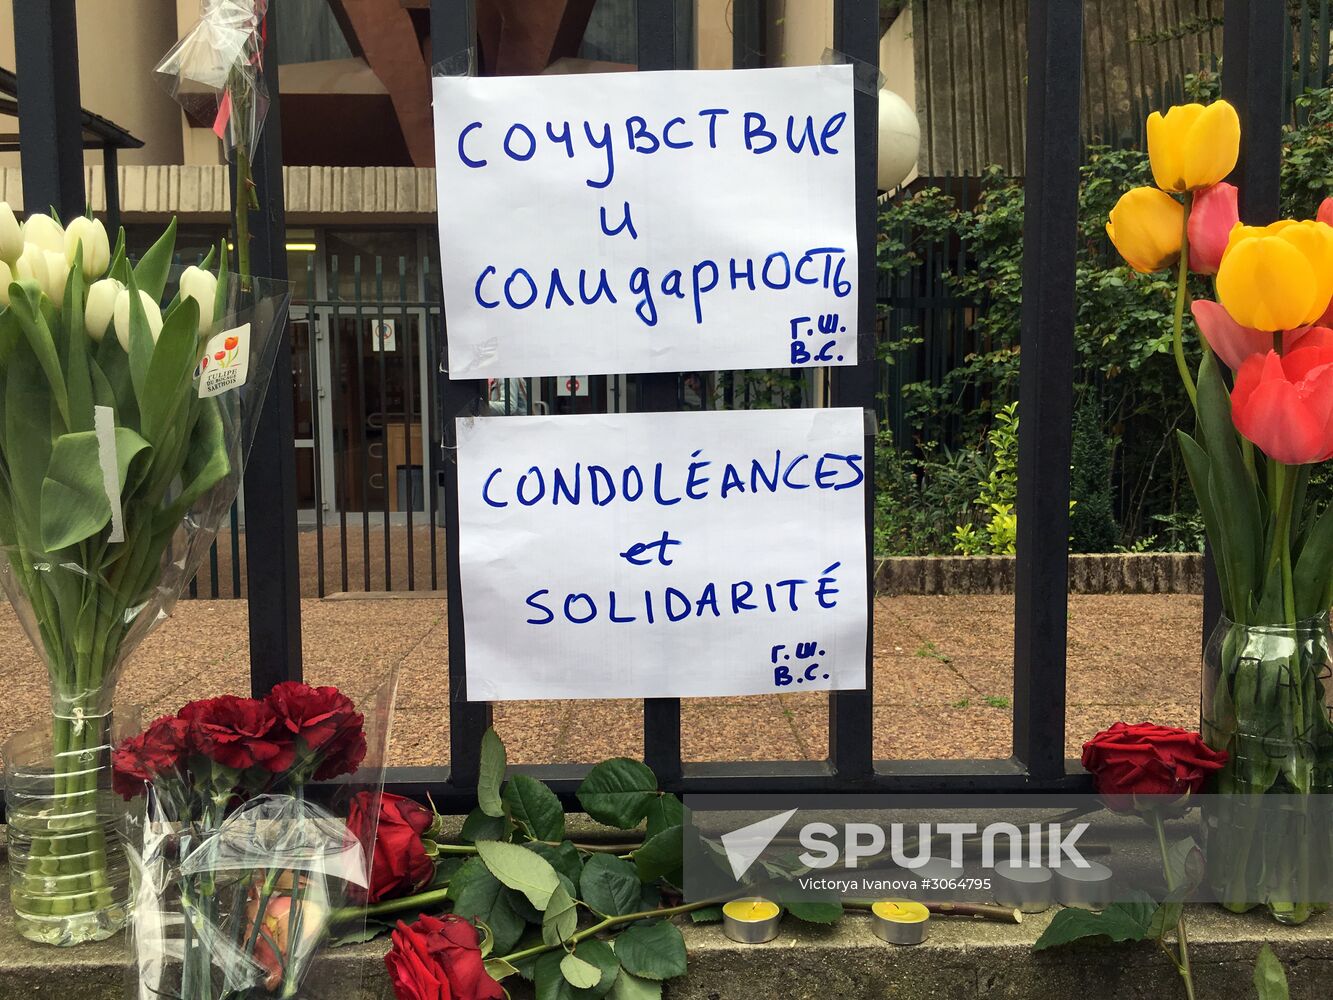 Сочувствие
и
солидарность
Г.Ш.
В.С.
CONDOLÉANCES
et
SOLIDARITÉ
Г.Ш.
В.С.
TULIPE
SPUTNIK
Victorya Ivanova #3064795